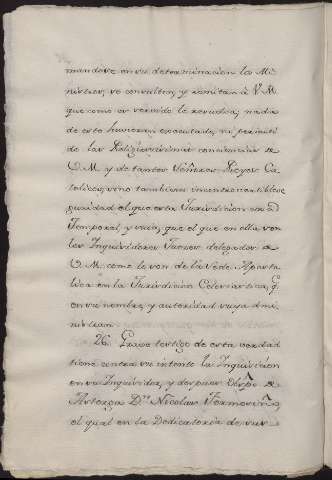 mandose en su determinacion los Mi-
nistros, se consulten, y remitan á V. M.
que como es verdad le resuelva, nada
de esto huvieran executado, ni permiti-
do las Religiosissimas conciencias de
V. M. y de tantos Señores Reyes Ca-
tolicos, sino tambien incontrastables
que el que esta Jurisdicion era
Temporal, y suia, que el que en ella son
los Inquisidores Jueces delegados de
V. M. como lo son de la Sede Aposto-
lica en la Jurisdicion Eclesiastica, q.
en su nombre, y autoridad suya admi-
nistran.
26. Grave testigo de esta verdad
tiene contra su intento la Inquisicion
en su Inquisidor, y despues Obispo de
Astorga Dn. Nicolas Fermosino,
el qual en la Dedicatoria de sus